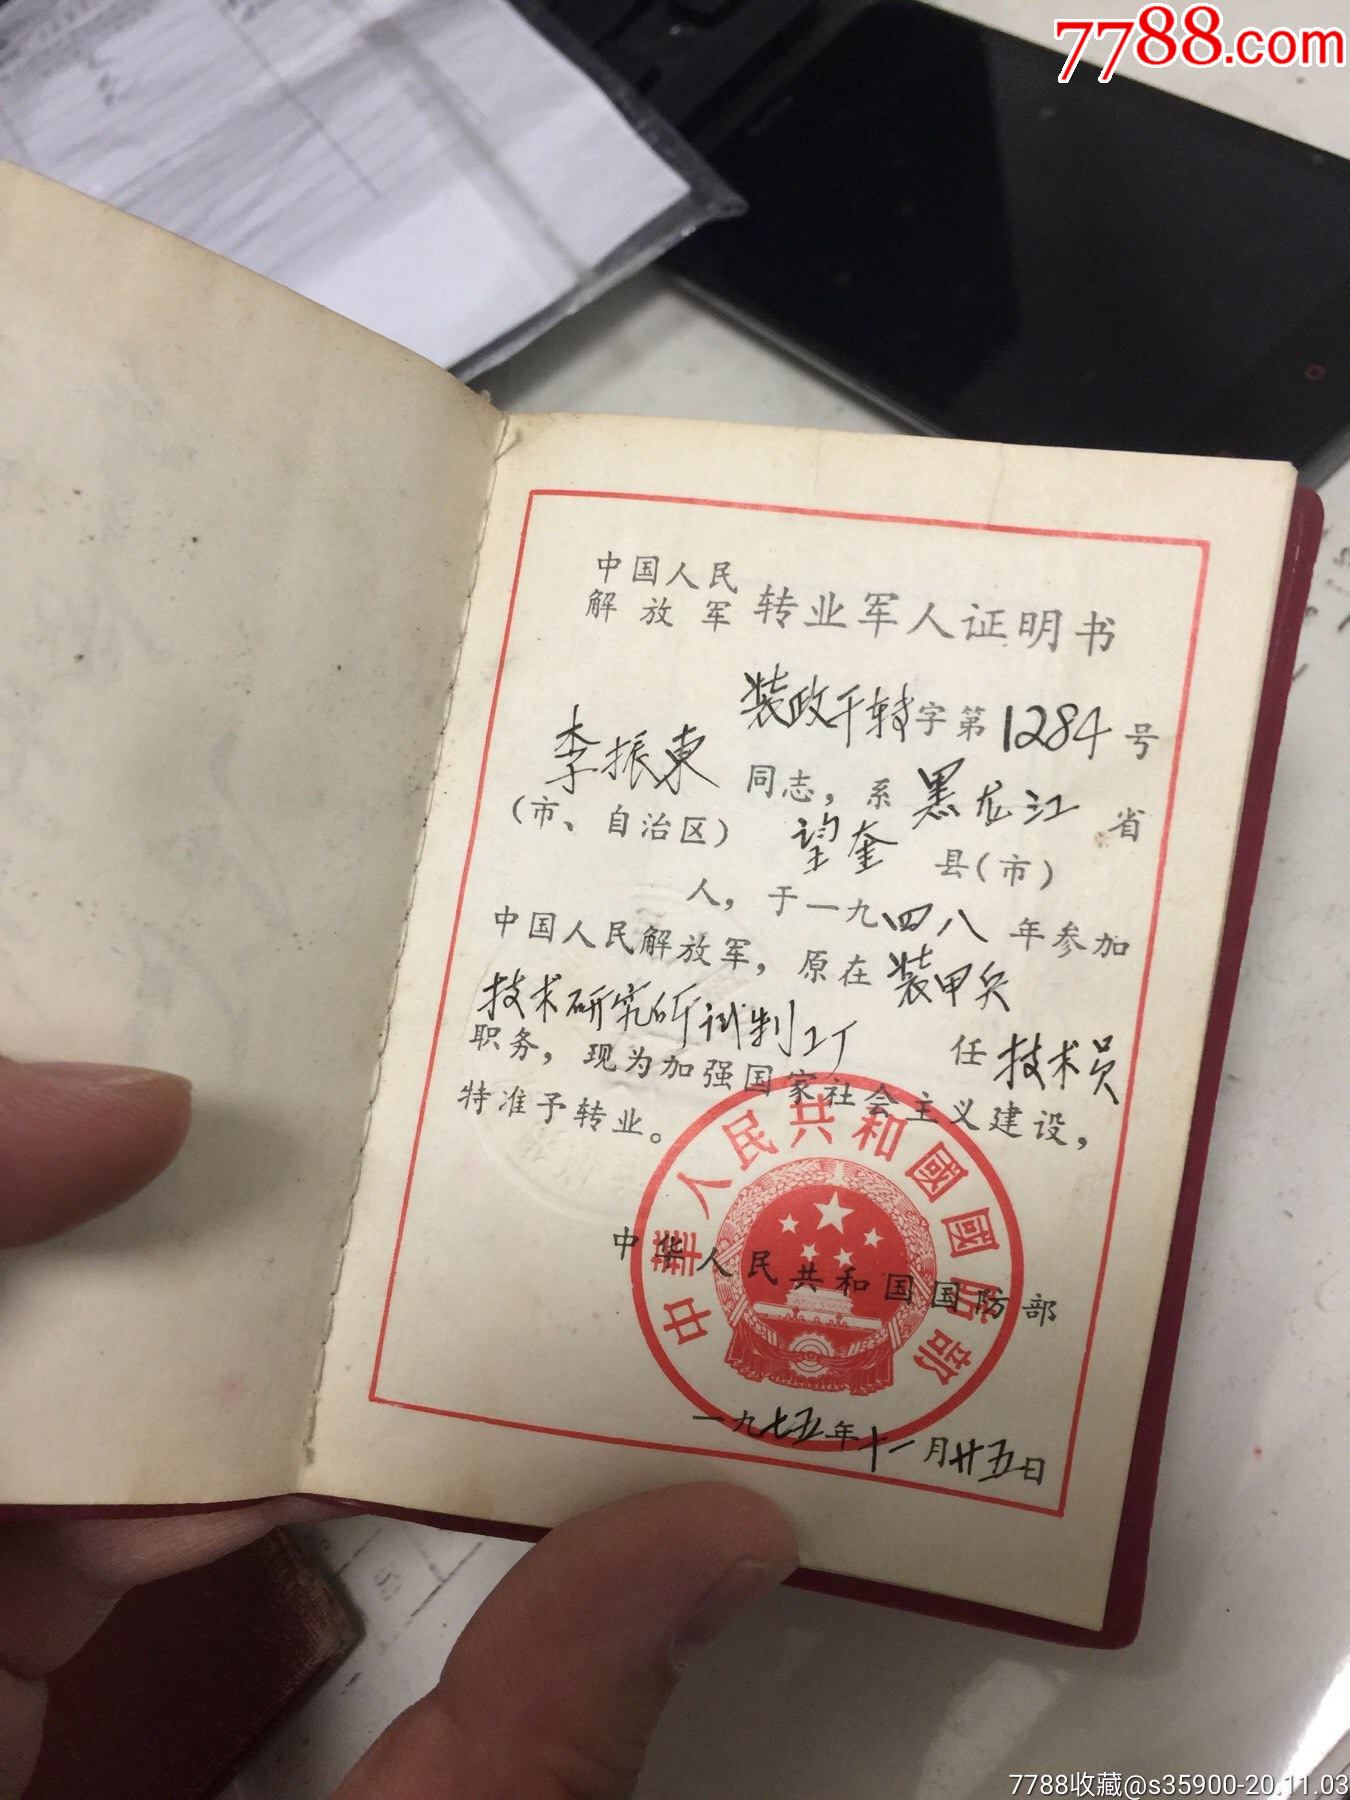 7788.com
中国人民
解放军 转业军人证明书
装政干转字第1284号
李振東同志，系黑龙江省
（市、自治区）望奎县（市）
人，于一九四八年参加
中国人民解放军，原在装甲兵
技术研究所试制工厂任技术员
职务，现为加强国家社会主义建设，
特准予转业。
中華人民共和國國防部
中华人民共和国国防部
一九七五年十一月廿五日
7788收藏@s35900-20.11.03